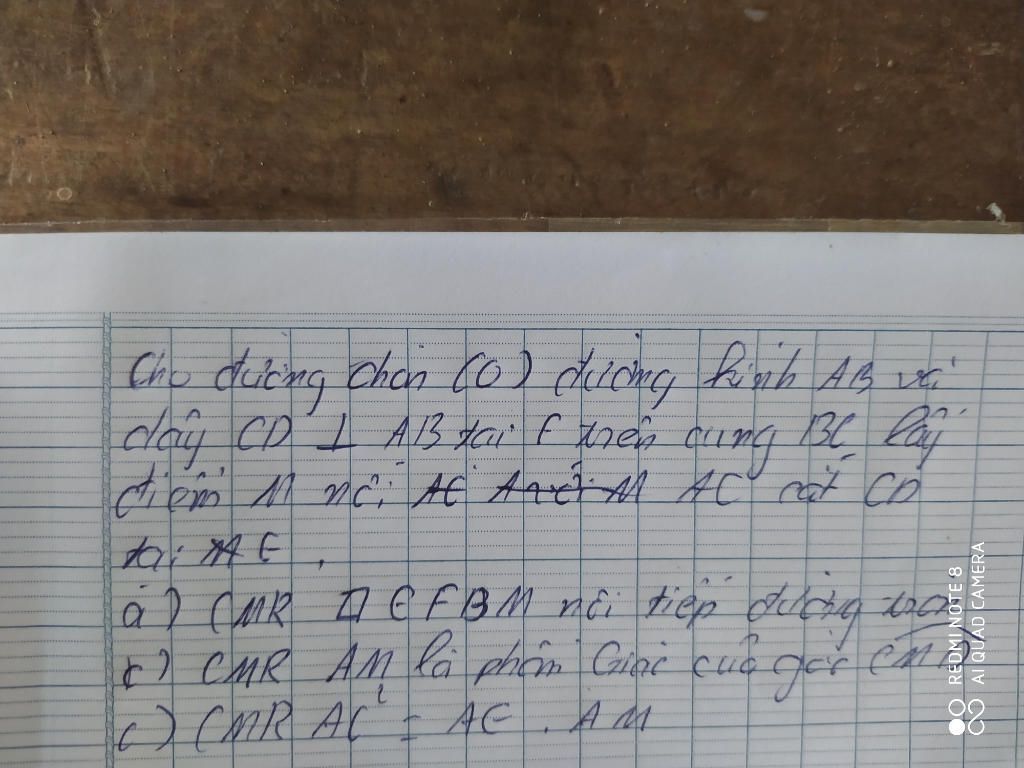 Cho đường chòn (O) đường kính AB và
dây CD ⊥ AB tại F trên cung BC lấy
điểm M nối AC cắt CD
tại E .
a) CMR □ EFBM nội tiếp đường tròn
c) CMR AM là phân Giác của góc CMD
c) CMR AC² = AE . AM
REDMI NOTE 8
AI QUAD CAMERA